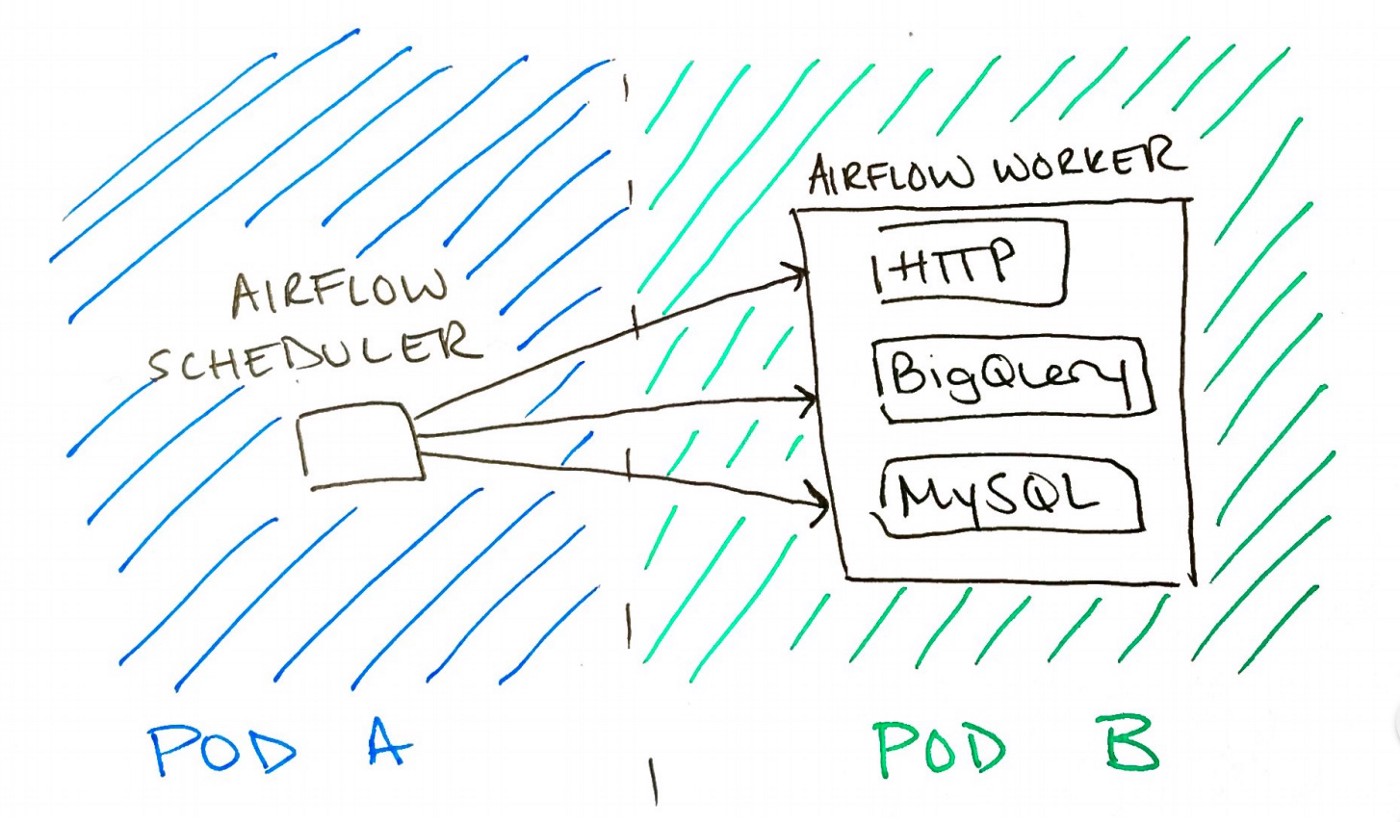 AIRFLOW
SCHEDULER
AIRFLOW WORKER
HTTP
BigQuery
MySQL
POD A
POD B